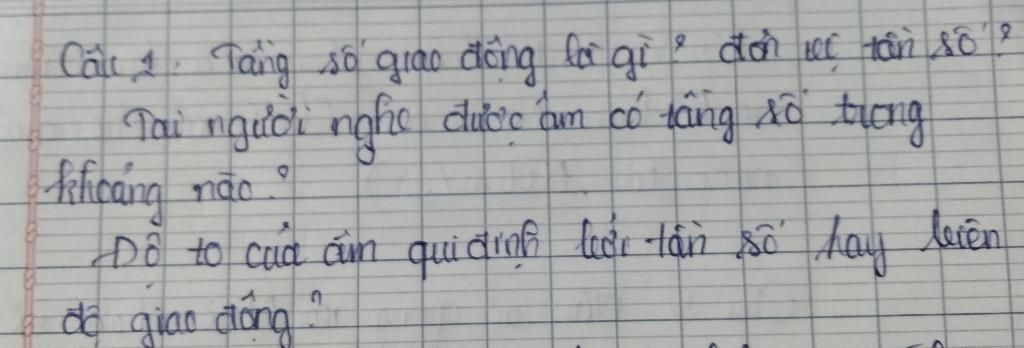 Câu 1. Tầng số giao động là gì? đơn vị tần số?
Tai người nghe được âm có tầng số trong
khoảng nào?
Độ to của âm qui định bởi tần số hay biên
độ giao động?